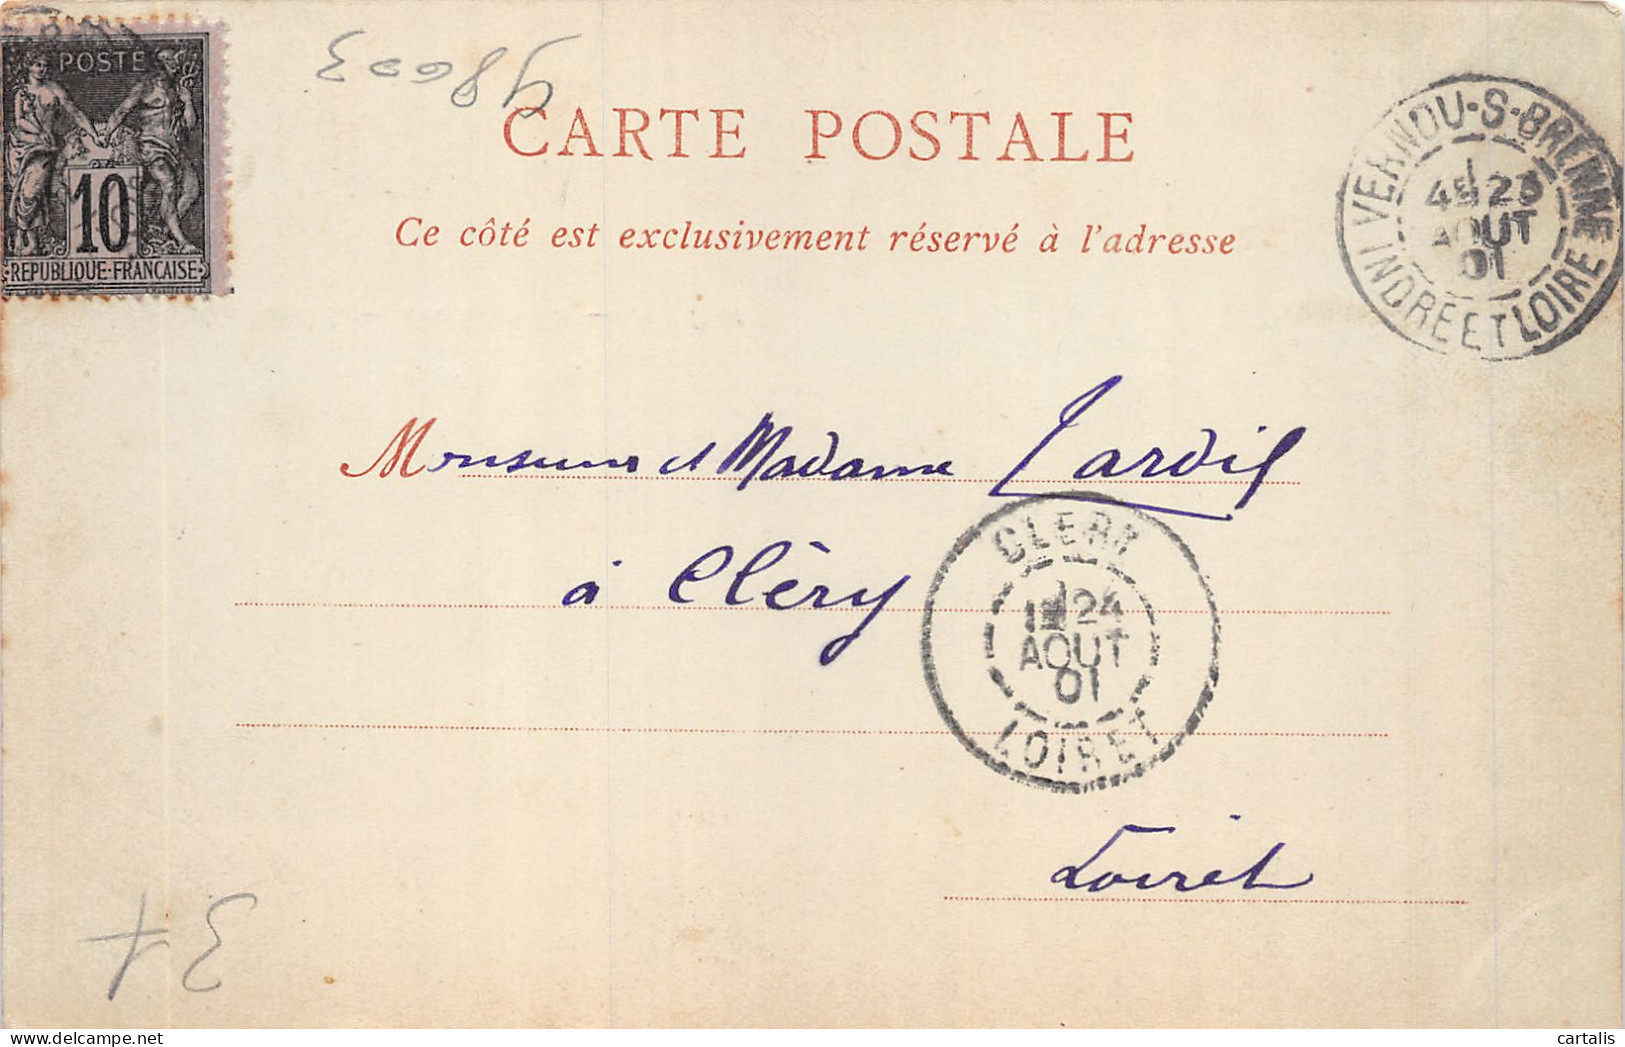 POSTE
10
REPUBLIQUE-FRANCAISE
48003
CARTE POSTALE
Ce côté est exclusivement réservé à l'adresse
VERNOU-S-BRENNE
23
AOUT
01
INDRE ET LOIRE
Monsieur et Madame Tardif
à Cléry
CLERY
24
AOUT
01
LOIRET
Loiret
37
cartalis